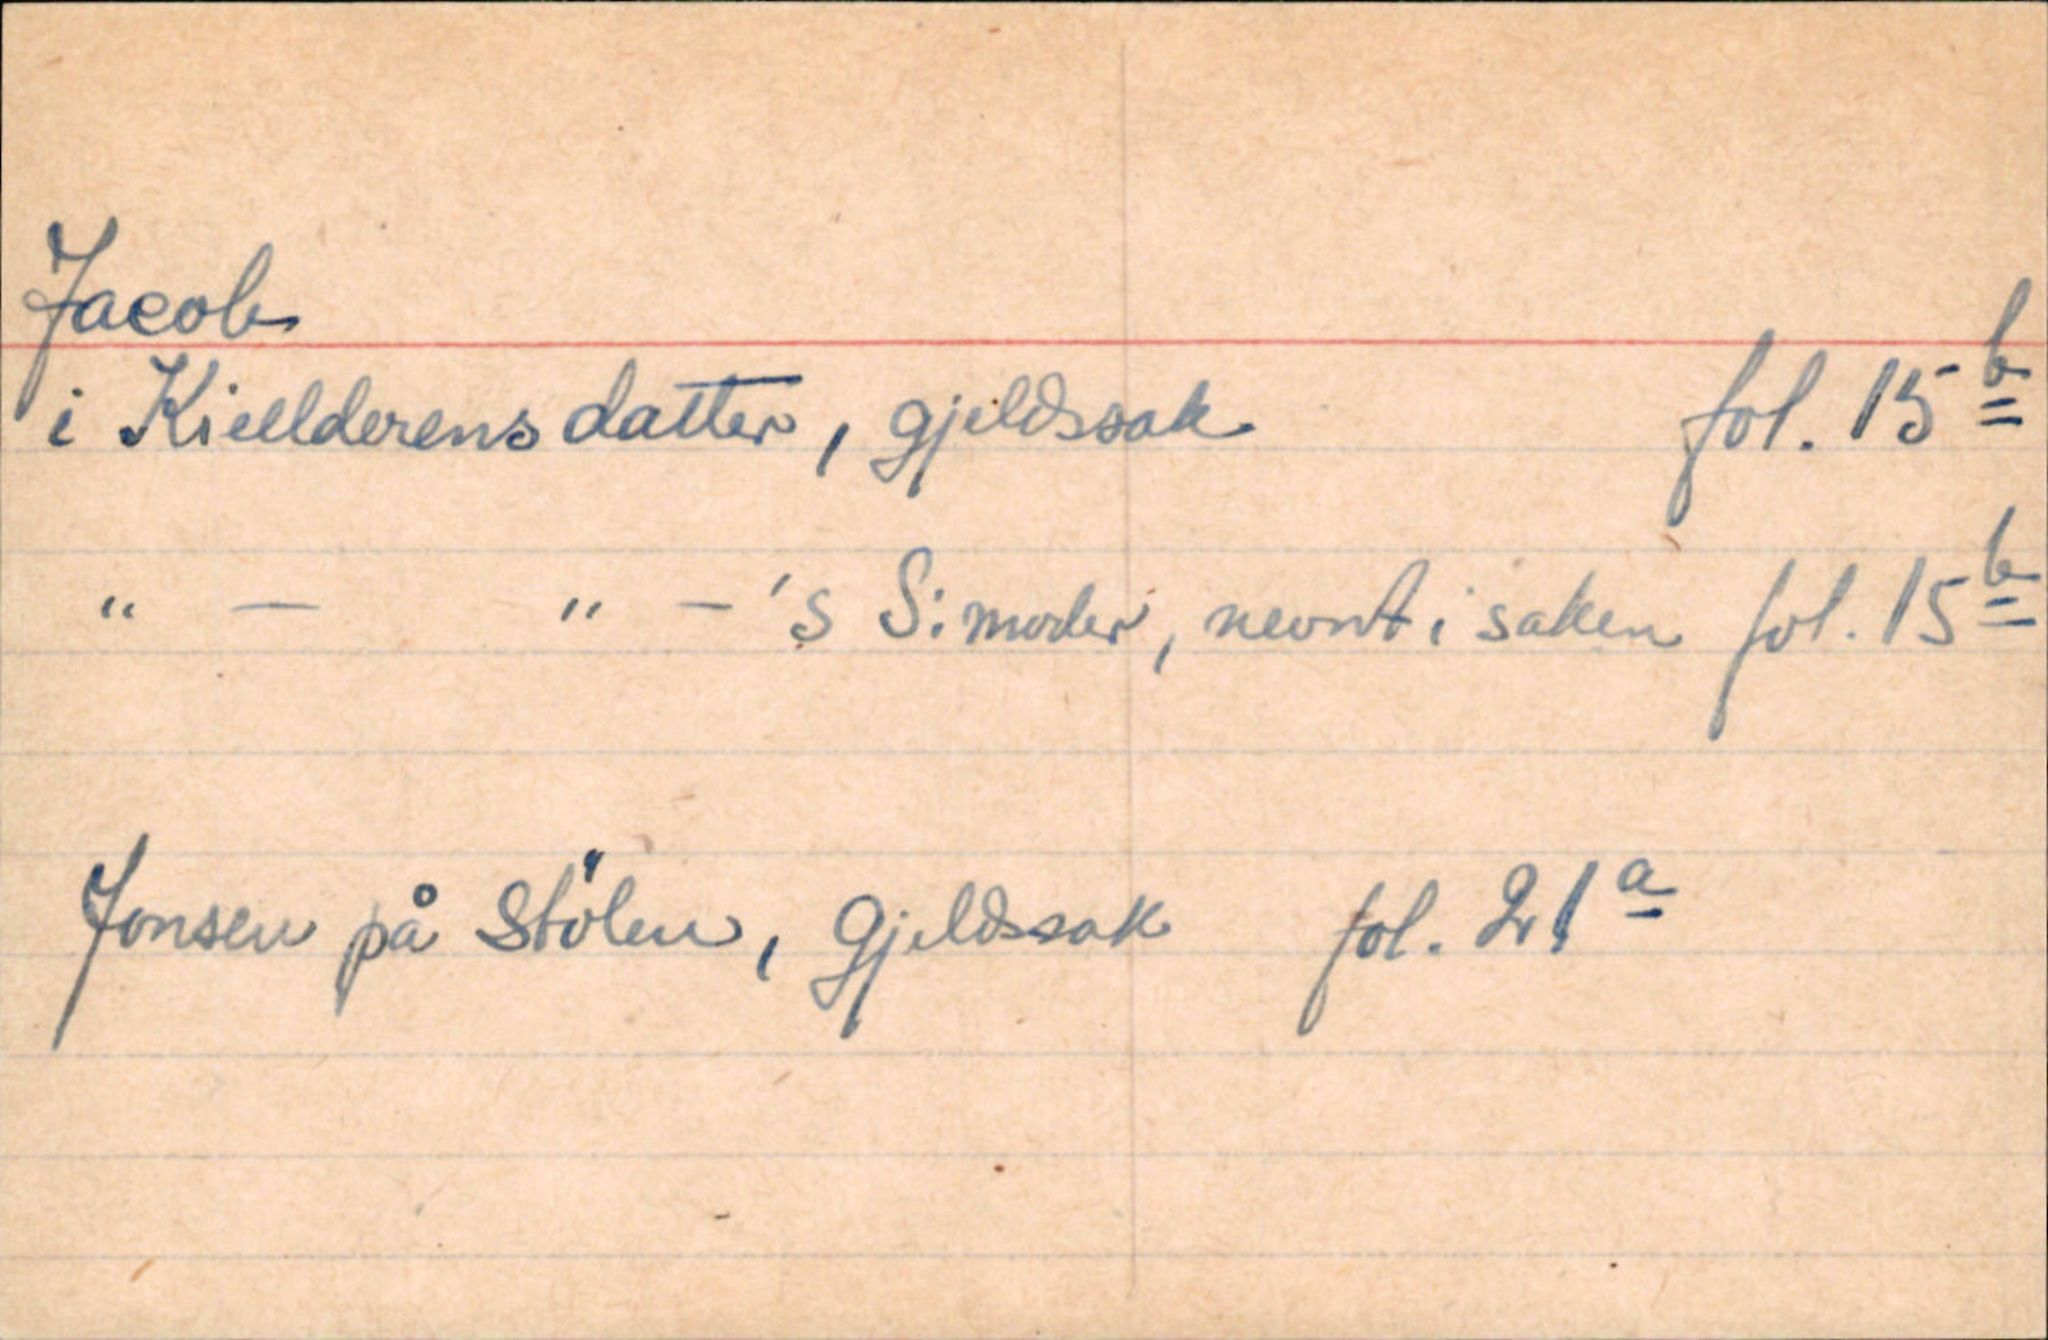 Jacob
i Kiellderens datter, gjeldssak fol. 15 b
" — " — 's S: moder, nevnt i saken fol. 15 b
Jonsen på Stölen, gjeldssak fol. 21 a